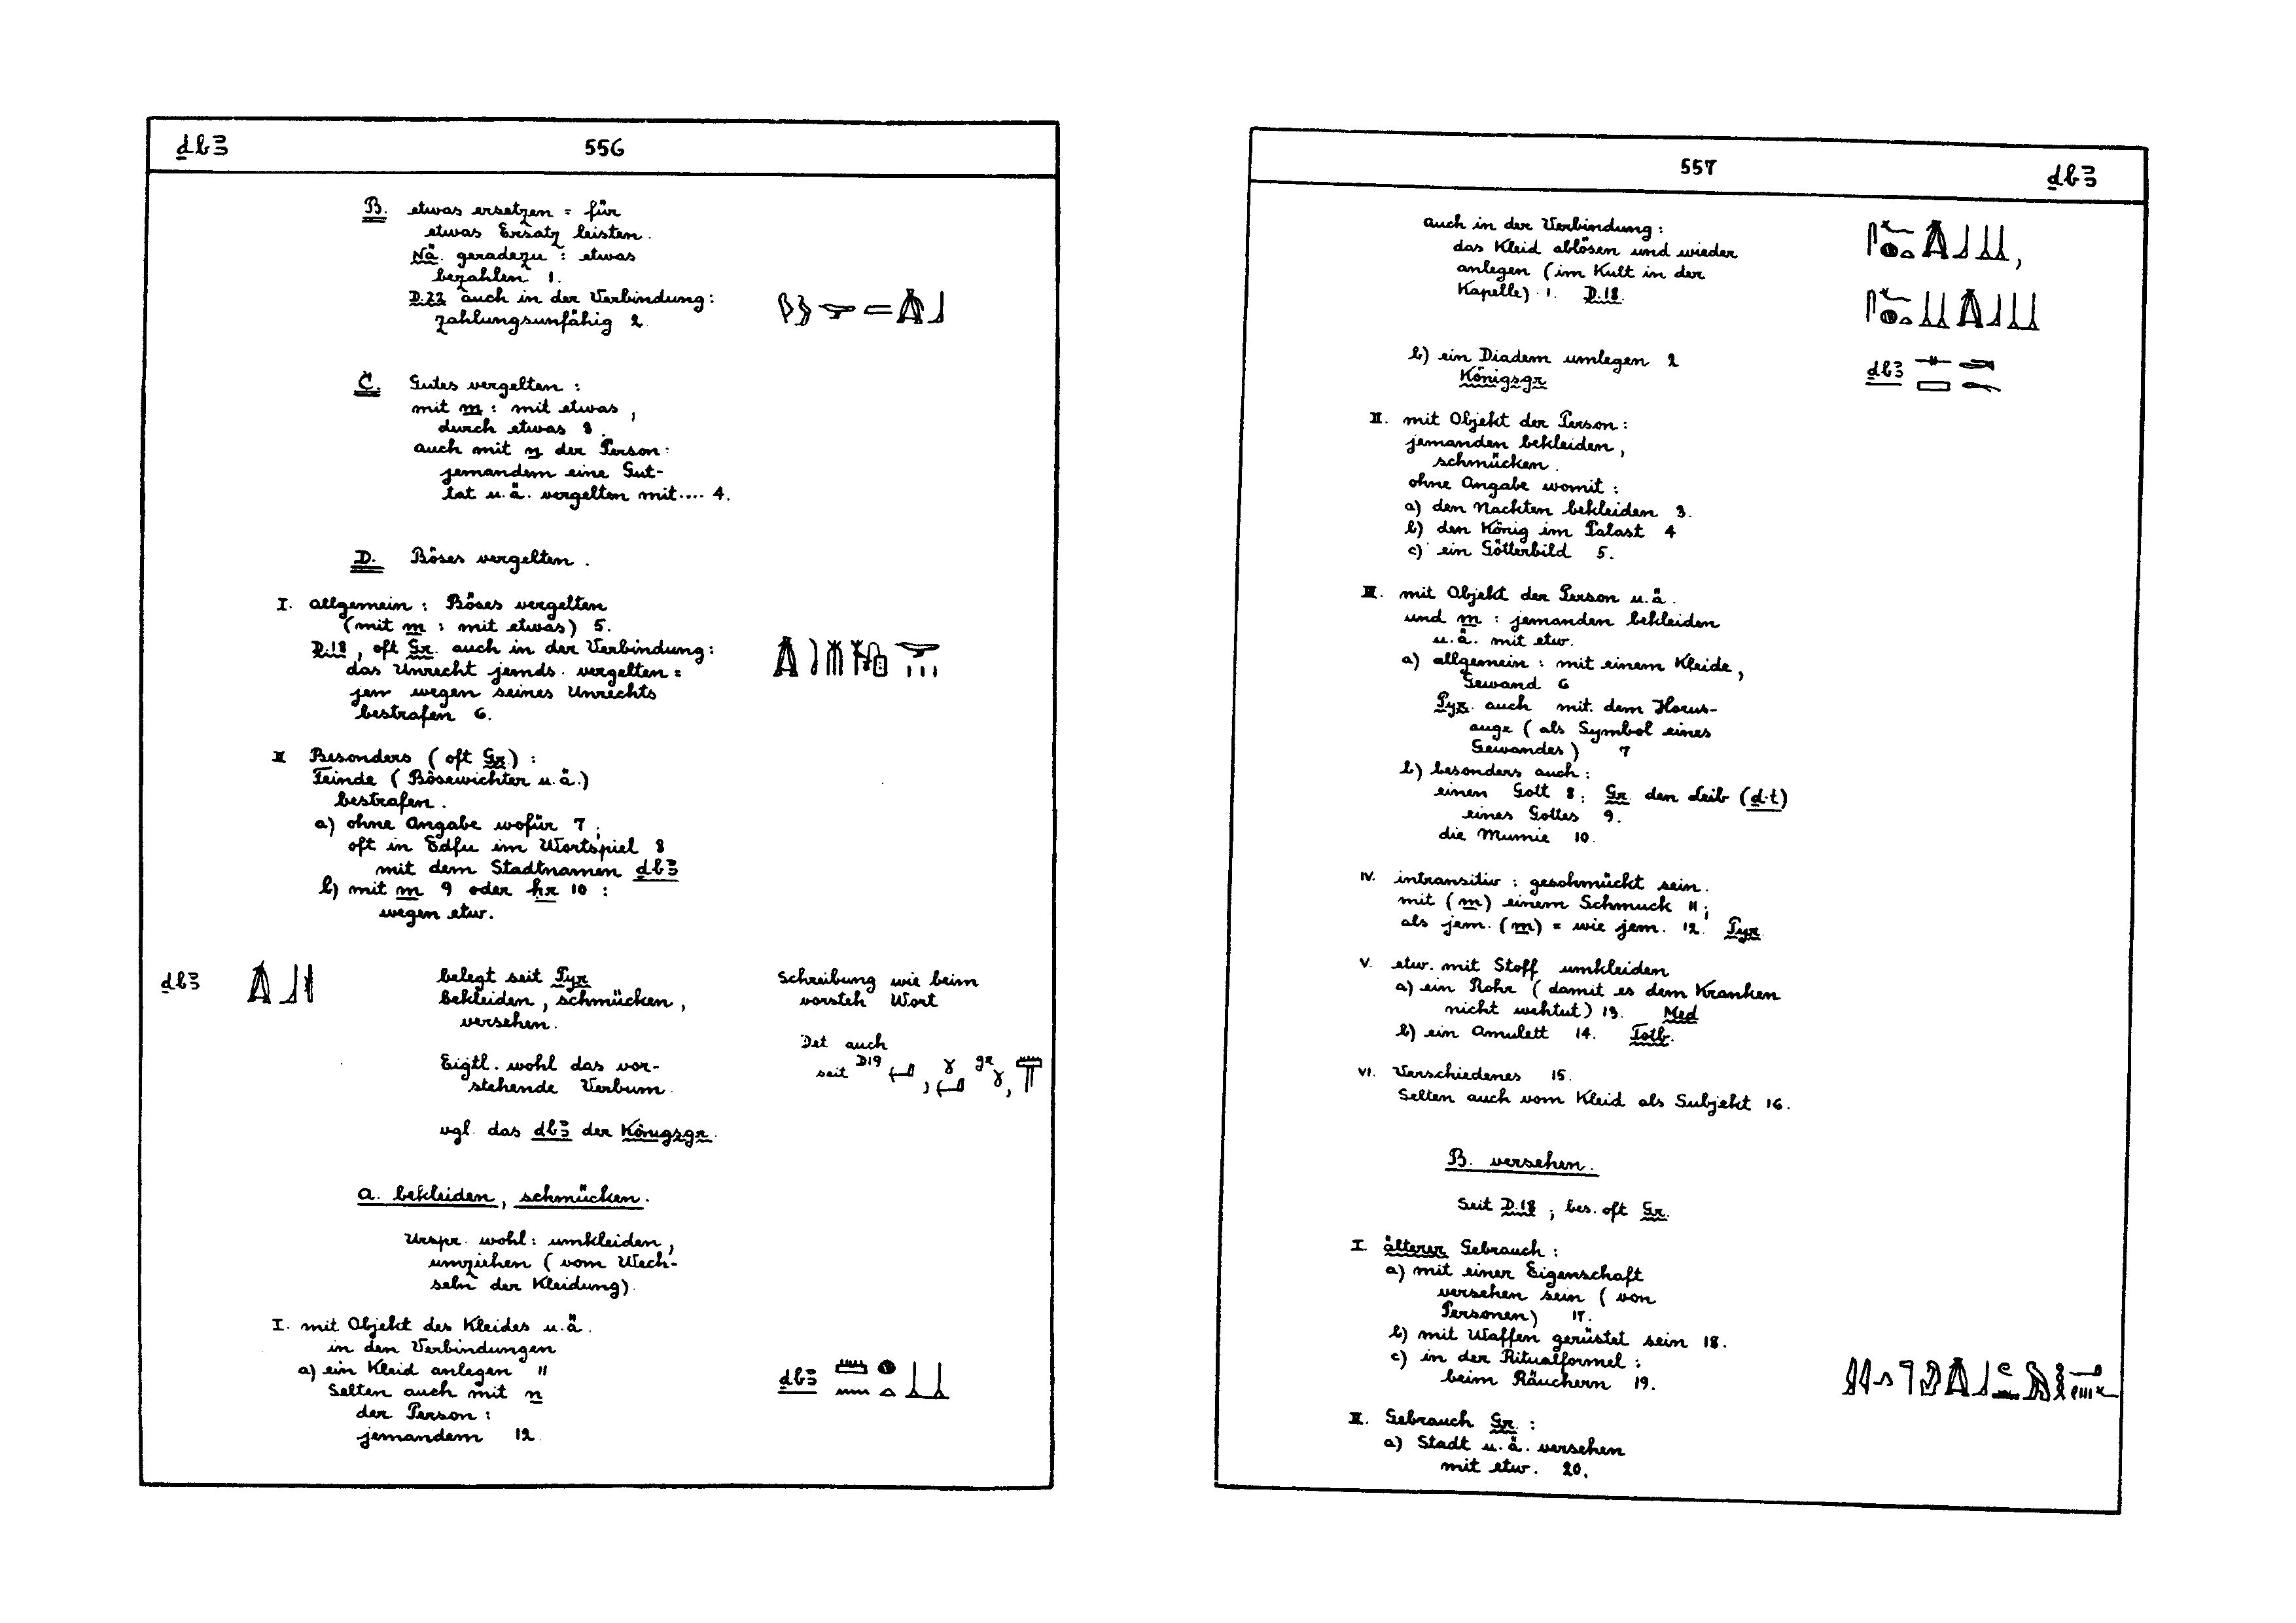 ḏbꜣ
556
B. etwas ersetzen = für
etwas Ersatz leisten.
Nä. geradezu : etwas
bezahlen 1.
D.22 auch in der Verbindung:
zahlungsunfähig 2
C. Gutes vergelten :
mit m : mit etwas,
durch etwas 3.
auch mit n der Person:
jemandem eine Gut-
tat u.ä. vergelten mit.... 4.
D. Böses vergelten.
I. allgemein : Böses vergelten
(mit m : mit etwas) 5.
D.18, oft Gr. auch in der Verbindung:
das Unrecht jemds. vergelten =
jem wegen seines Unrechts
bestrafen 6.
II Besonders (oft Gr.) :
Feinde (Bösewichter u.ä.)
bestrafen.
a) ohne Angabe wofür 7;
oft in Edfu im Wortspiel 8
mit dem Stadtnamen ḏbꜣ
b) mit m 9 oder ḥr 10 :
wegen etw.
ḏbꜣ
belegt seit Pyr
bekleiden, schmücken,
versehen.
Schreibung wie beim
vorsteh Wort
Det auch
seit D19
gr
Eigtl. wohl das vor-
stehende Verbum.
vgl. das ḏbꜣ der Königsgr.
A. bekleiden, schmücken.
Urspr. wohl : umkleiden,
umziehen (vom Wech-
seln der Kleidung).
I. mit Objekt des Kleides u.ä.
in den Verbindungen
a) ein Kleid anlegen 11
ḏbꜣ
Selten auch mit n
der Person :
jemandem 12.
557
ḏbꜣ
auch in der Verbindung :
das Kleid ablösen und wieder
anlegen (im Kult in der
Kapelle) 1. D.18.
b) ein Diadem umlegen 2
ḏbꜣ
Königsgr
II. mit Objekt der Person :
jemanden bekleiden,
schmücken.
ohne Angabe womit :
a) den Nackten bekleiden 3.
b) den König im Palast 4
c) ein Götterbild 5.
III. mit Objekt der Person u.ä.
und m : jemanden bekleiden
u.ä. mit etw.
a) allgemein : mit einem Kleide,
Gewand 6
Pyr. auch mit dem Horus-
auge (als Symbol eines
Gewandes) 7
b) besonders auch :
einen Gott 8; Gr. den Leib (ḏ.t)
eines Gottes 9.
die Mumie 10.
IV. intransitiv : geschmückt sein.
mit (m) einem Schmuck 11;
als jem. (m) = wie jem. 12. Pyr.
V. etw. mit Stoff umkleiden
a) ein Rohr (damit es dem Kranken
nicht wehtut) 13. Med
b) ein Amulett 14. Totb.
VI. Verschiedenes 15.
Selten auch vom Kleid als Subjekt 16.
B. versehen.
Seit D.18, bes. oft Gr.
I. älterer Gebrauch :
a) mit einer Eigenschaft
versehen sein (von
Personen) 17.
b) mit Waffen gerüstet sein 18.
c) in der Ritualformel :
beim Räuchern 19.
II. Gebrauch Gr. :
a) Stadt u.ä. versehen
mit etw. 20.